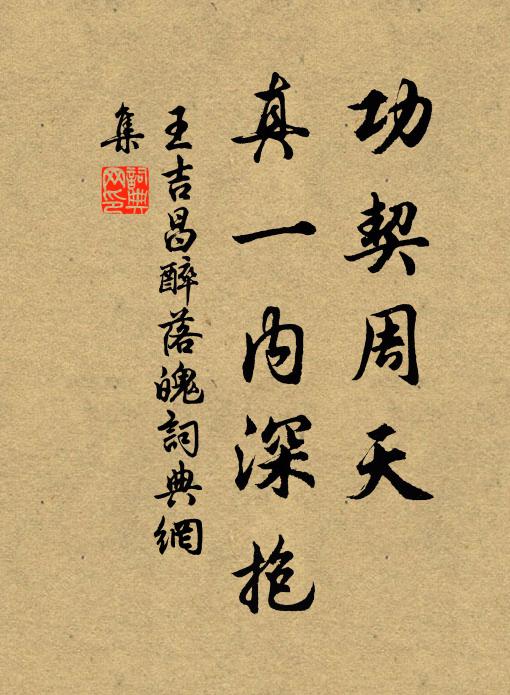 功契周天
真一内深抱
王吉昌醉落魄詞典網
集
詞典
网印